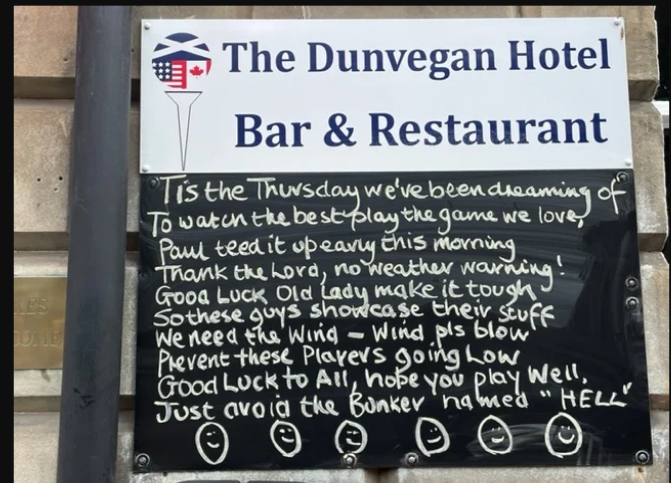 The Dunvegan Hotel
Bar & Restaurant
Tis the Thursday we've been dreaming of
To watch the best play the game we love,
Paul teed it up early this morning
Thank the Lord, no weather warning!
Good Luck Old Lady make it tough
So these guys showcase their stuff
We need the Wind - Wind pls blow
Prevent these Players going Low
Good Luck to All, hope you play Well,
Just avoid the Bunker named "HELL"